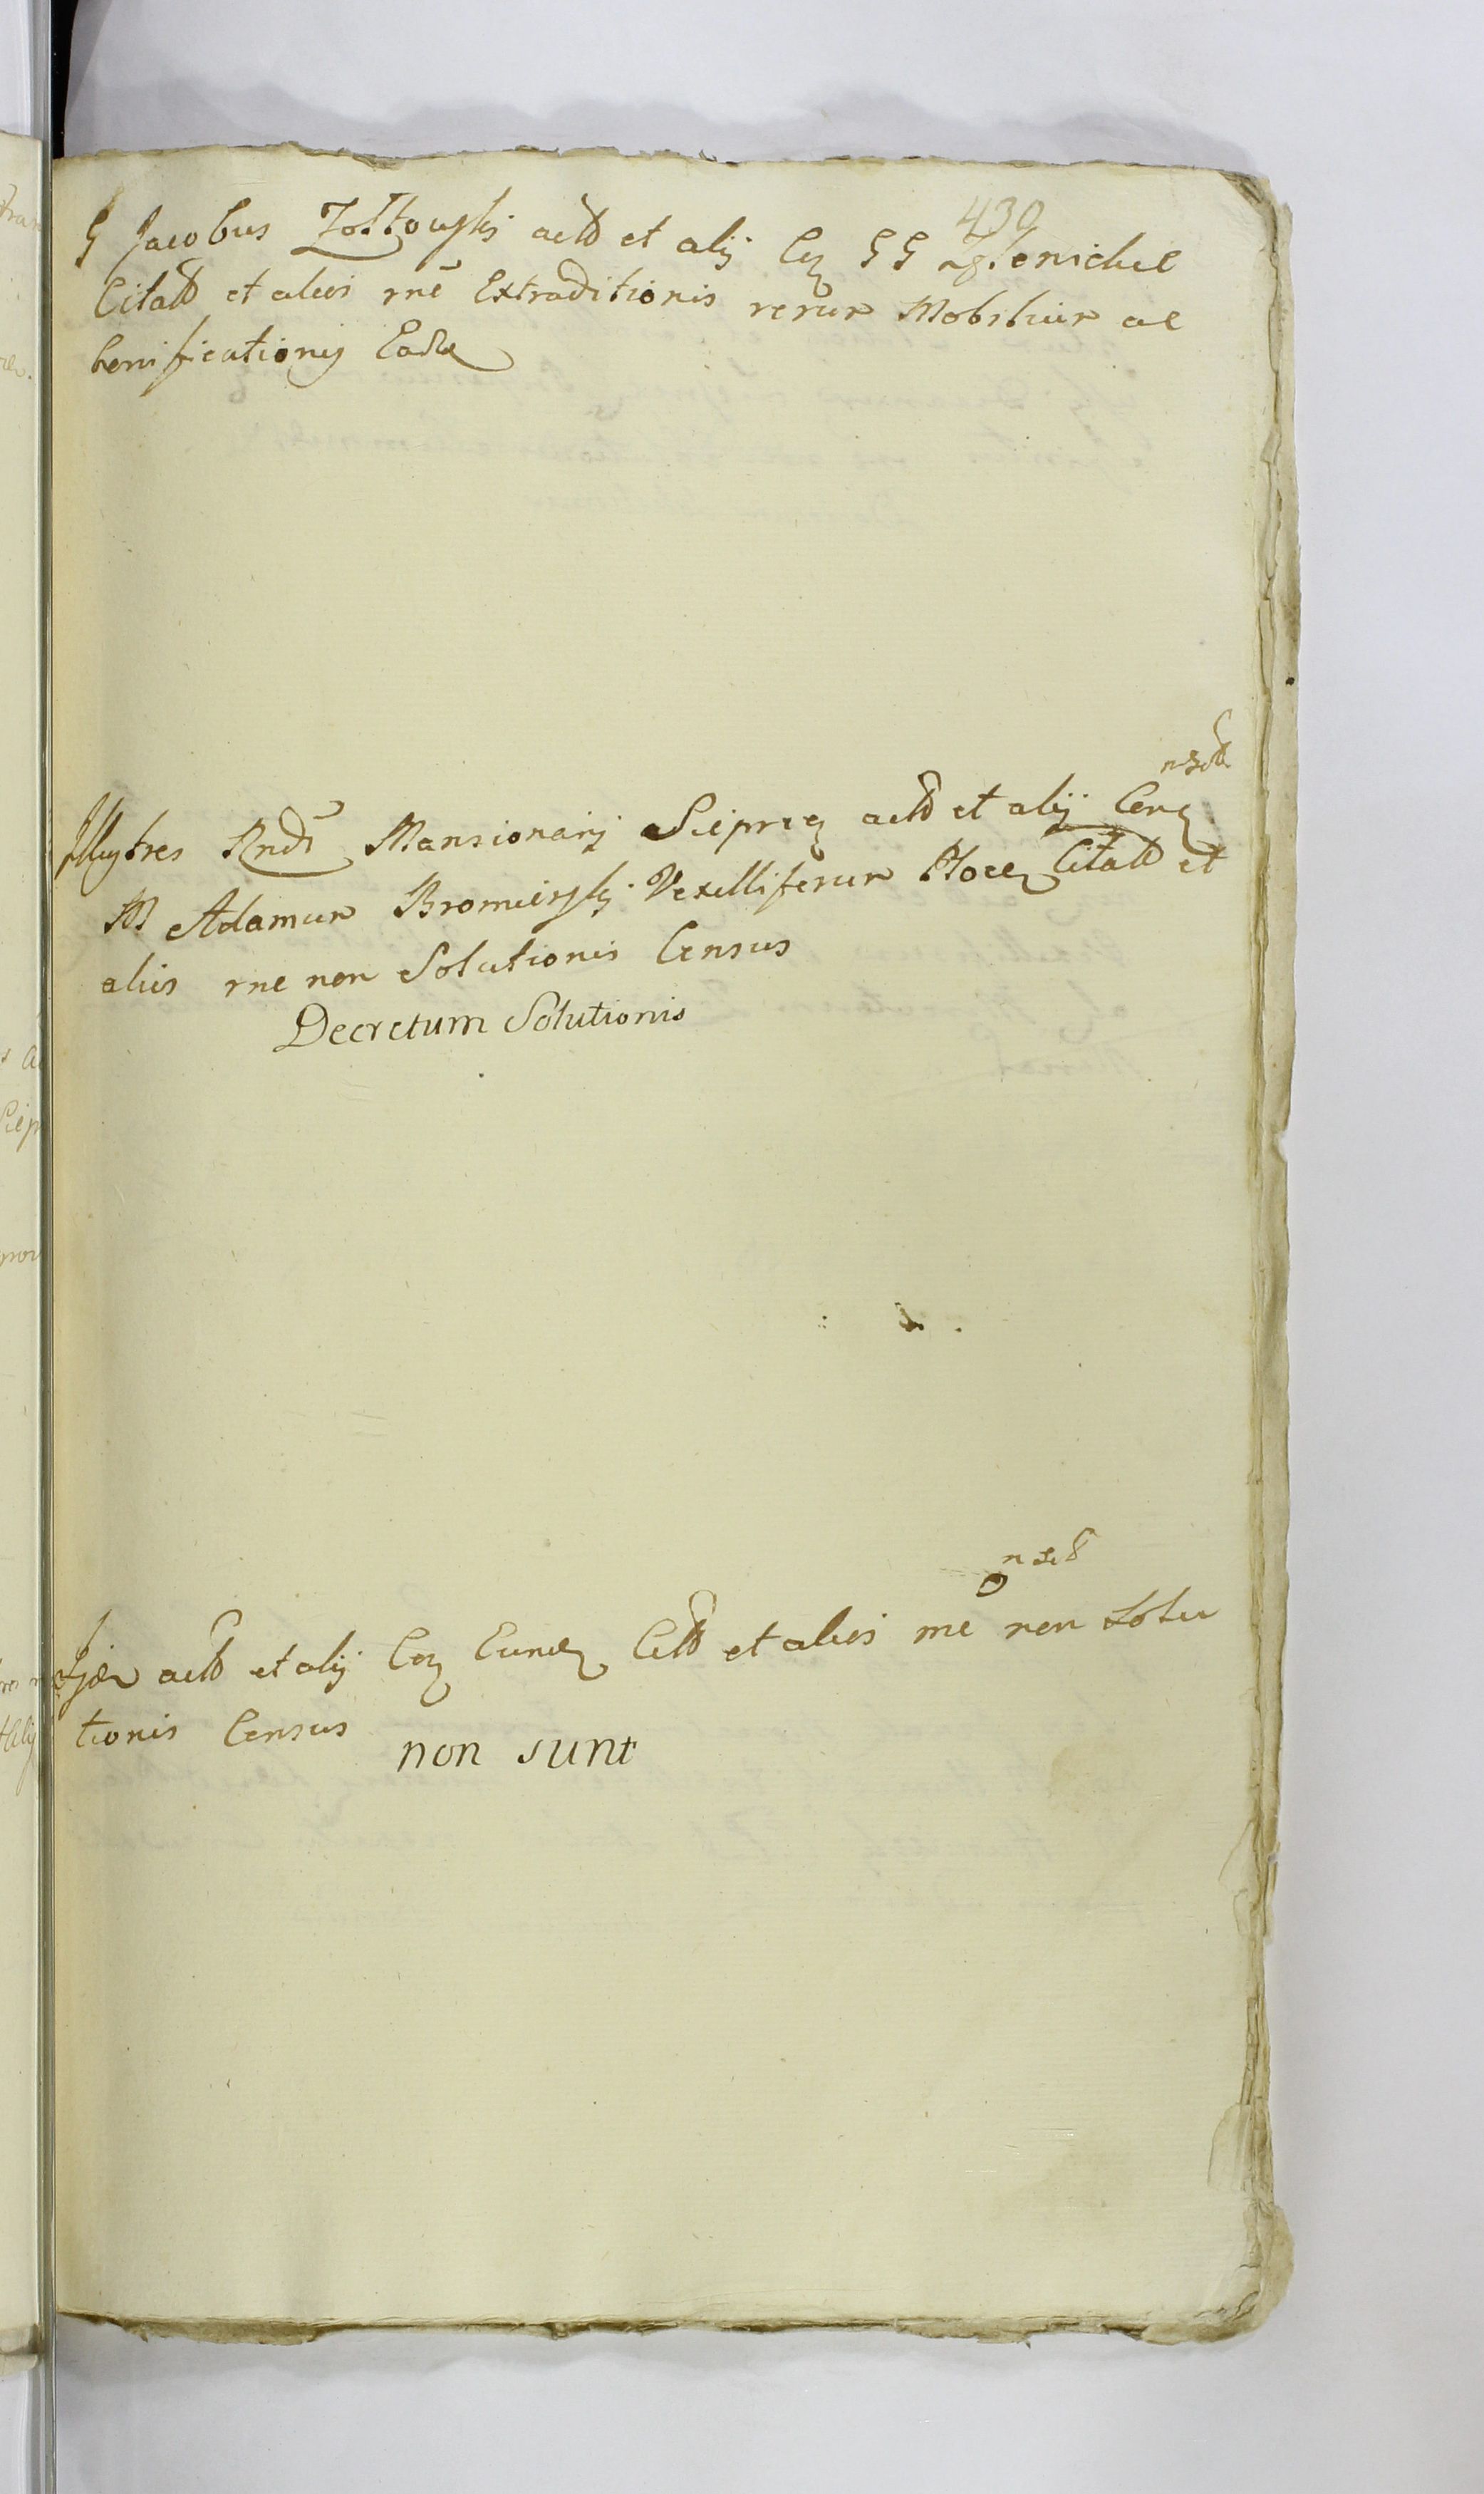 430
G Jacobus Zołtowski actb et alij Cq GG Zglenickie
Citatb et alios rne Extraditionis rerum Mobilium ac
benificationis Eadq
nsctb
Illustres Rndi Mansionarij Sieprcq actb et alij Cenq
M Adamum Bromierski Vexilliferum Plocen Citatb et
alios rne non Solutionis Census
Decretum Solutionis
nsctb
Ijdem actb et alij Cq Eundq Citb et alios rne non Solu
tionis Census
non sunt